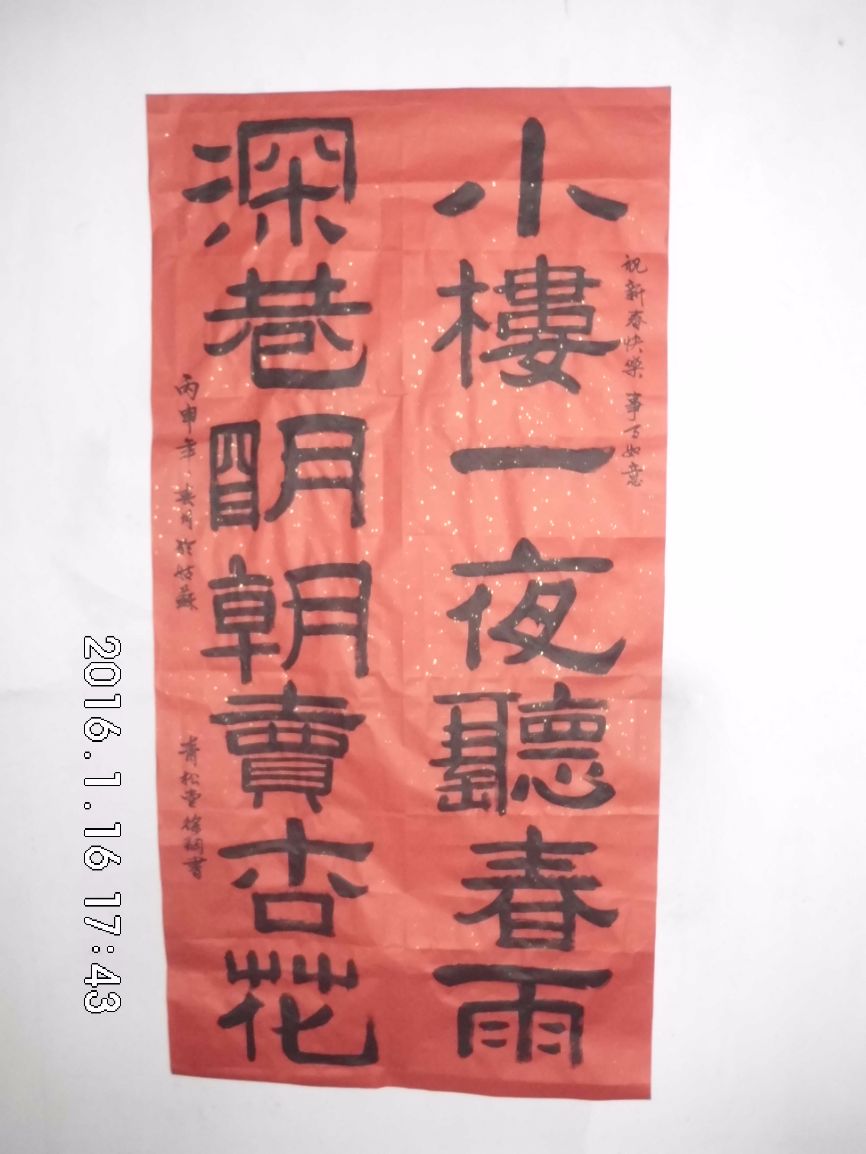 小樓一夜聽春雨
祝新春快樂 事事如意
深巷明朝賣杏花
丙申年 於姑蘇
青松 徐 書
2016.1.16 17:43